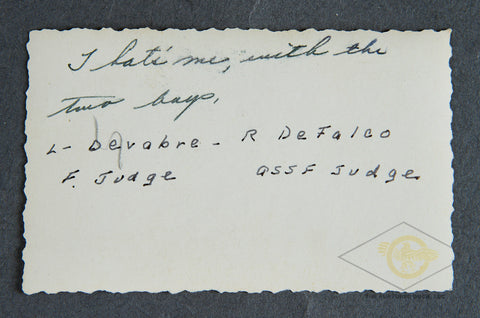 That's me, with the
two boys.
L- Devabre - R DeFalco
F. Judge        ASSF Judge